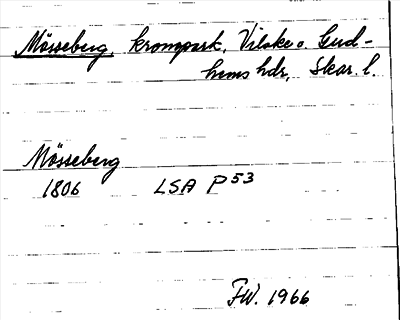 Mösseberg, kronopark, Vilske o. Gud-
hems hdr, Skar. l.
Mösseberg
1806 LSA P 53
FW. 1966